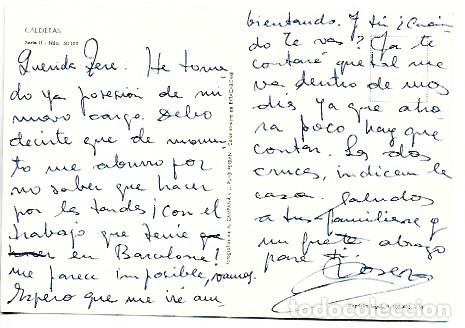 CALDETAS
Serie II - Núm. 50.103
Querida Pere. He toma
do ya posesión de mi
nuevo cargo. Debo
decirte que de momen
to me aburro por
no saber que hacer
por las tardes ¡con el
trabajo que tenía que
hacer en Barcelona!
me parece imposible, vamos.
Espero que me iré am
bientando. Y tú ¿Cuán
do te vas? Ya te
contaré que tal me
va, dentro de unos
dis ya que aho
ra poco hay que
contar. Las dos
cruces, indican la
casa. Saludos
a tus familiares y
un fuerte abrazo
para ti.
todocoleccion